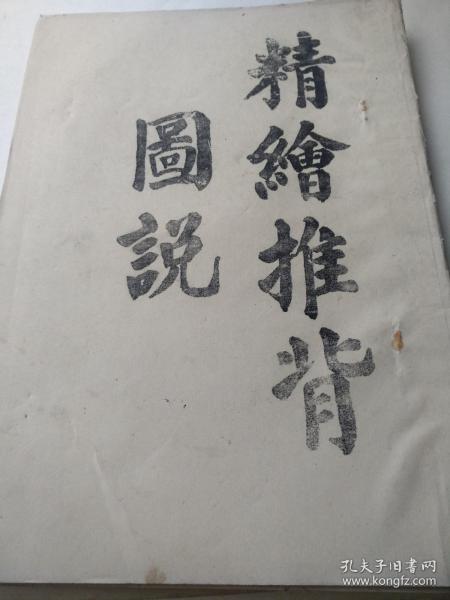 精繪推背
圖説
孔夫子旧书网
www.kongfz.com